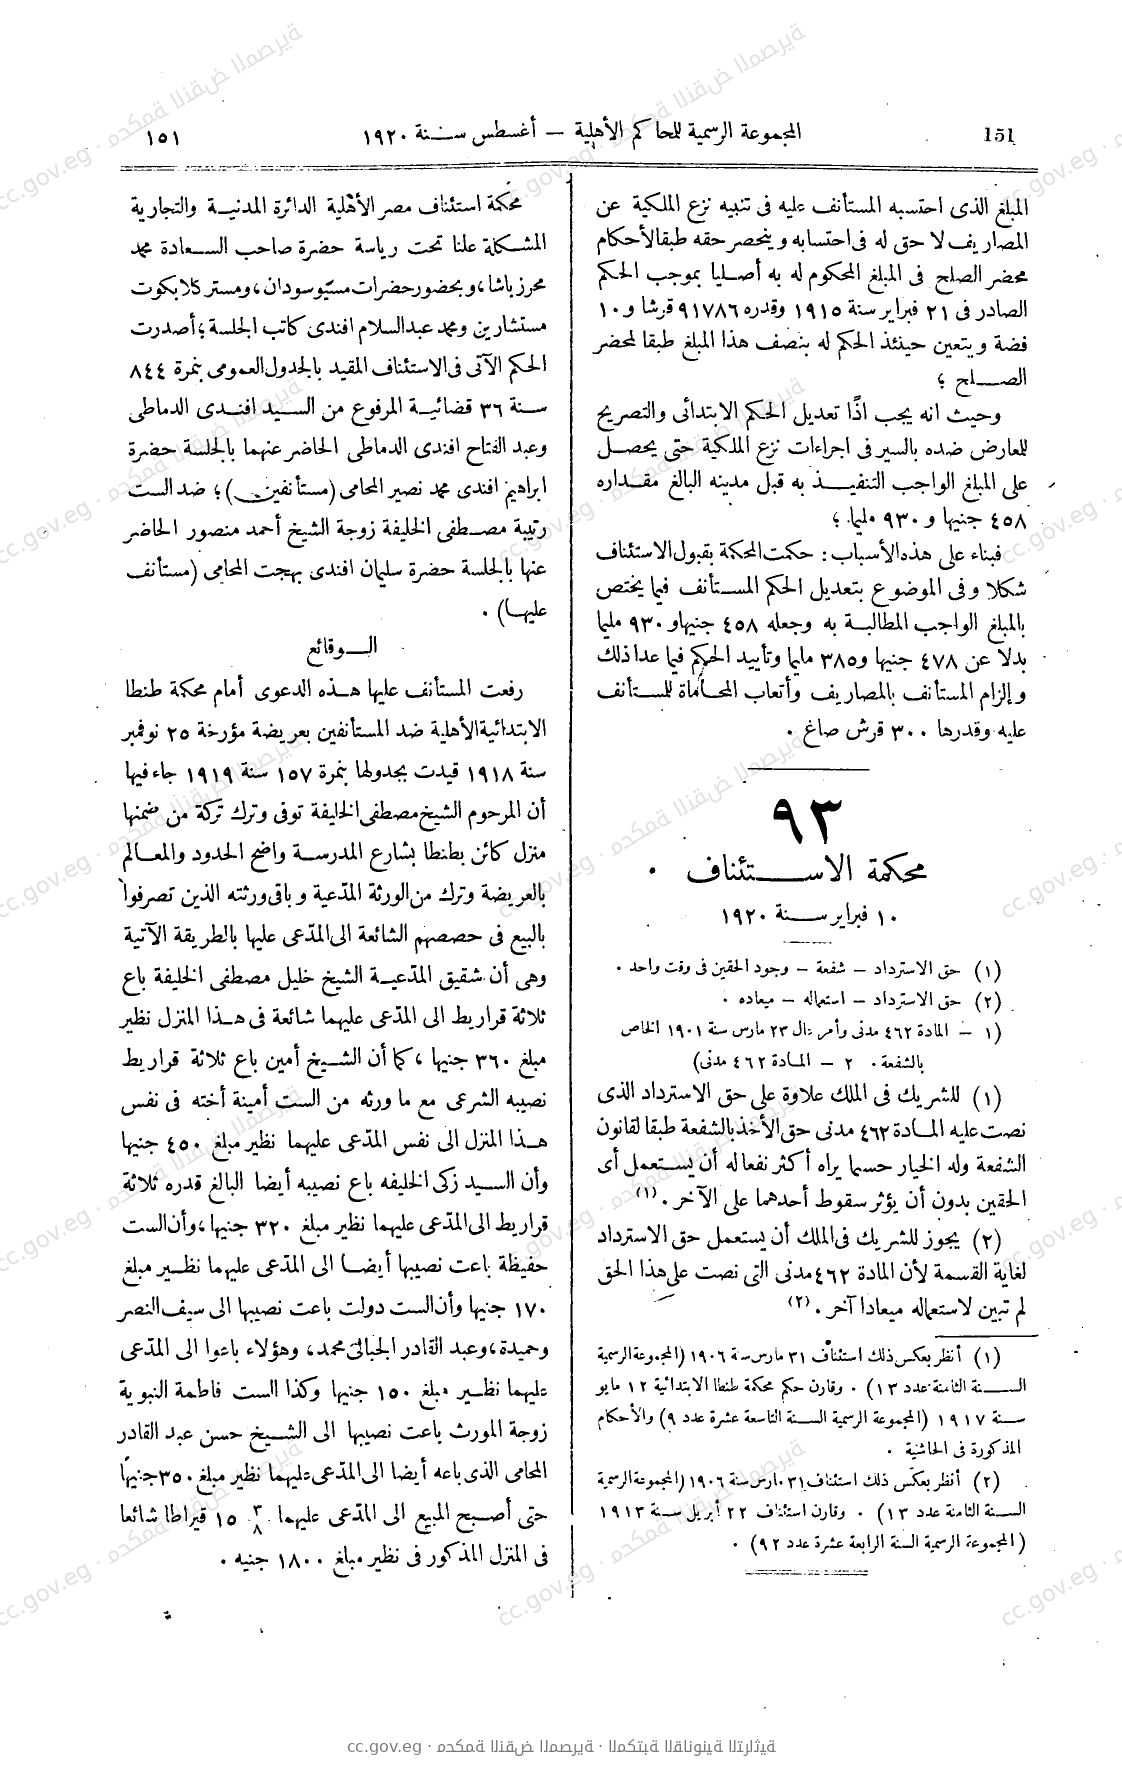 151
المجموعة الرسمية للمحاكم الأهلية – أغسطس سنة ١٩٢٠
١٥١
المبلغ الذى احتسبه المستأنف عليه فى تنبيه نزع الملكية عن
المصاريف لا حق له فى احتسابه وينحصر حقه طبقا لأحكام
محضر الصلح فى المبلغ المحكوم له به أصليا بموجب الحكم
الصادر فى ٢١ فبراير سنة ١٩١٥ وقدره ٩١٧٨٦ قرشا و١٠
فضة ويتعين حينئذ الحكم له بنصف هذا المبلغ طبقا لمحضر
الصلح ؛
وحيث انه يجب اذًا تعديل الحكم الابتدائى والتصريح
للمعارض ضده بالسير فى اجراءات نزع الملكية حتى يحصل
على المبلغ الواجب التنفيذ به قبل مدينه البالغ مقداره
٤٥٨ جنيها و ٩٣٠ مليما ؛
فبناء على هذه الأسباب : حكمت المحكمة بقبول الاستئناف
شكلا وفى الموضوع بتعديل الحكم المستأنف فيما يختص
بالمبلغ الواجب المطالبة به وجعله ٤٥٨ جنيها و ٩٣٠ مليما
بدلا عن ٤٧٨ جنيها و٣٨٥ مليما وتأييد الحكم فيما عدا ذلك
وإلزام المستأنف بالمصاريف وأتعاب المحاماة للمستأنف
عليه وقدرها ٣٠٠ قرش صاغ .
٩٣
محكمة الاستئناف .
١٠ فبراير سنة ١٩٢٠
(١) حق الاسترداد – شفعة – وجود الحقين فى وقت واحد .
(٢) حق الاسترداد – استعماله – ميعاده .
(١ – المادة ٤٦٢ مدنى وأمر عال ٢٣ مارس سنة ١٩٠١ الخاص
بالشفعة . ٢ – المادة ٤٦٢ مدنى)
(١) للشريك فى الملك علاوة على حق الاسترداد الذى
نصت عليه المادة ٤٦٢ مدنى حق الأخذ بالشفعة طبقا لقانون
الشفعة وله الخيار حسبما يراه أكثر نفعا له أن يستعمل أى
الحقين بدون أن يؤثر سقوط أحدهما على الآخر . (١)
(٢) يجوز للشريك فى الملك أن يستعمل حق الاسترداد
لغاية القسمة لأن المادة ٤٦٢ مدنى التى نصت على هذا الحق
لم تبين لاستعماله ميعادا آخر . (٢)
(١) أنظر بعكس ذلك استئناف ٣١ مارس سنة ١٩٠٦ (المجموعة الرسمية
السنة الثامنة عدد ١٣) . وقارن حكم محكمة طنطا الابتدائية ١٢ مايو
سنة ١٩١٧ (المجموعة الرسمية السنة التاسعة عشرة عدد ٩) والأحكام
المذكورة فى الحاشية .
(٢) أنظر بعكس ذلك استئناف ٣١ مارس سنة ١٩٠٦ (المجموعة الرسمية
السنة الثامنة عدد ١٣) . وقارن استئناف ٢٢ أبريل سنة ١٩١٣
(المجموعة الرسمية السنة الرابعة عشرة عدد ٩٢) .
محكمة استئناف مصر الأهلية الدائرة المدنية والتجارية
المشكلة علنا تحت رياسة حضرة صاحب السعادة محمد
محرز باشا ، وبحضور حضرات مسيو سودان ، ومستر كلايكوت
مستشارين ومحمد عبد السلام افندى كاتب الجلسة ؛ أصدرت
الحكم الآتى فى الاستئناف المقيد بالجدول العمومى بنمرة ٨٤٤
سنة ٣٦ قضائية المرفوع من السيد افندى الدماطى
وعبد الفتاح افندى الدماطى الحاضر عنهما بالجلسة حضرة
ابراهيم افندى محمد نصير المحامى (مستأنفين) ؛ ضد الست
رتيبة مصطفى الخليفة زوجة الشيخ أحمد منصور الحاضر
عنها بالجلسة حضرة سليمان افندى بهجت المحامى (مستأنف
عليها) .
الوقائع
رفعت المستأنف عليها هذه الدعوى أمام محكمة طنطا
الابتدائية الأهلية ضد المستأنفين بعريضة مؤرخة ٢٥ نوفمبر
سنة ١٩١٨ قيدت بجدولها بنمرة ١٥٧ سنة ١٩١٩ جاء فيها
أن المرحوم الشيخ مصطفى الخليفة توفى وترك تركة من ضمنها
منزل كائن بطنطا بشارع المدرسة واضح الحدود والمعالم
بالعريضة وترك من الورثة المدّعية وباقى ورثته الذين تصرفوا
بالبيع فى حصصهم الشائعة الى المدّعى عليها بالطريقة الآتية
وهى أن شقيق المدّعية الشيخ خليل مصطفى الخليفة باع
ثلاثة قراريط الى المدّعى عليهما شائعة فى هذا المنزل نظير
مبلغ ٣٦٠ جنيها ، كما أن الشيخ أمين باع ثلاثة قراريط
نصيبه الشرعى مع ما ورثه من الست أمينة أخته فى نفس
هذا المنزل الى نفس المدّعى عليهما نظير مبلغ ٤٥٠ جنيها
وأن السيد زكى الخليفه باع نصيبه أيضا البالغ قدره ثلاثة
قراريط الى المدّعى عليهما نظير مبلغ ٣٢٠ جنيها ، وأن الست
حفيظة باعت نصيبها أيضا الى المدّعى عليهما نظير مبلغ
١٧٠ جنيها وأن الست دولت باعت نصيبها الى سيف النصر
وحميدة ، وعبد القادر الجبالى محمد ، وهؤلاء باعوا الى المدّعى
عليهما نظير مبلغ ١٥٠ جنيها وكذا الست فاطمة النبوية
زوجة المورث باعت نصيبها الى الشيخ حسن عبد القادر
المحامى الذى باعه أيضا الى المدّعى عليهما نظير مبلغ ٣٥٠ جنيها
حتى أصبح المبيع الى المدّعى عليهما ٣/٨ ١٥ قيراطا شائعا
فى المنزل المذكور فى نظير مبلغ ١٨٠٠ جنيه .
cc.gov.eg · ةيرصملا ضقنلا ةمكحم · ةيثارتلا ةينوناقلا ةبتكملا